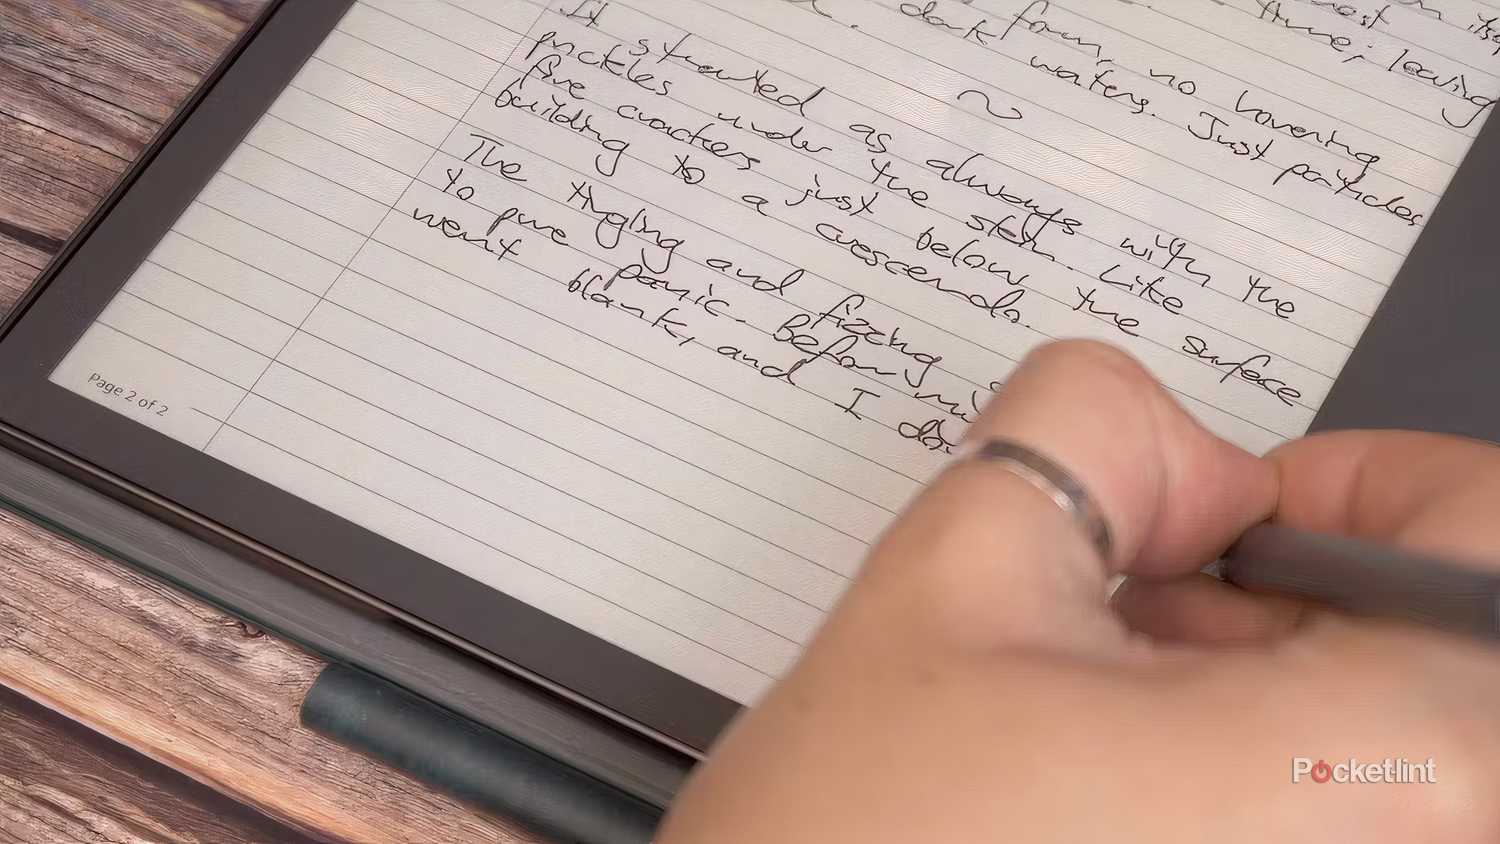 most
time; leaving
form, no hovering
dark waters. Just particles
~
It started as always with the
prickles under the skin. Like
fire crackers just below the surface
building to a crescendo.
The tingling and fizzing
to pure panic. Before
went blank, and I
Page 2 of 2
Pocketlint